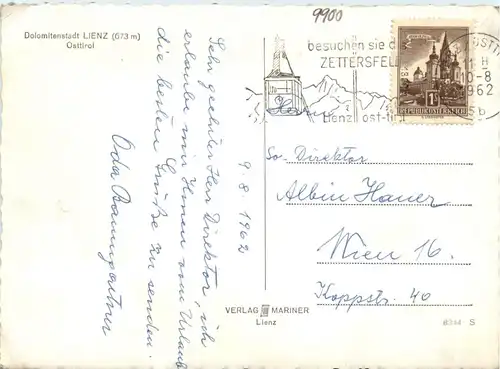 9900
Dolomitenstadt LIENZ (673 m)
Osttirol
besuchen sie d
ZETTERSFELD
Lienz ost-tirol
11-
10-8
1962
5b
MARIAZELL
1S
REPUBLIK ÖSTERREICH
9.8.1962
Sehr geehrter Herr Direktor, ich
erlaube mir Ihnen vom Urlaub
die besten Grüße zu senden.
Oda Baumgartner
Herrn
Direktor
Albin Hauer
Wien 16.
Koppstr. 40
VERLAG MARINER
Lienz
S